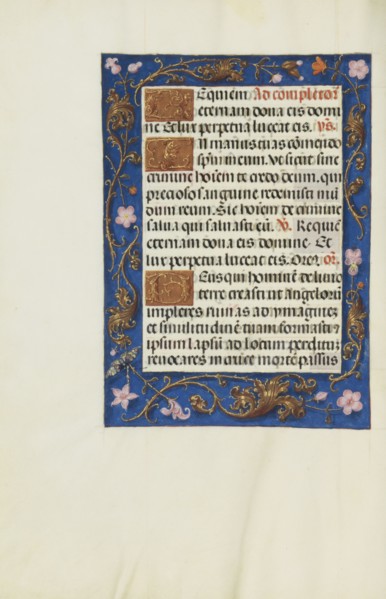 Requiem Ad completoriū
eternam dona eis domi
ne Et lux perpetua luceat eis. v̄s.
In manus tuas cōmendo
spm̄ meum. Ut sicut sine
crimine hoīem te credo deum. qui
precioso sanguine redemisti mū
dum reum. Sic hoīem de crimine
salua qui saluasti eū. Requiē
eternam dona eis domine. Et
lux perpetua luceat eis. Oreꝰ or̄.
Deus qui hominē de limo
terre creasti ut angelorū
impleres ruinas ad ymaginē
et similitudinē tuam formasti
ipsum lapsū ad locum perditum
reuocares in cruce mortē passus